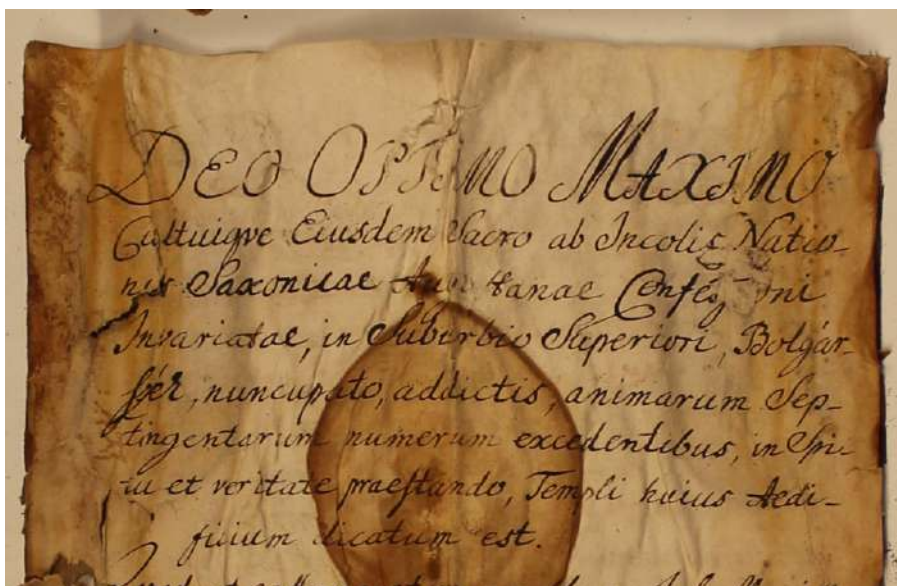 DEO OPTIMO MAXIMO
Cultuique Eiusdem Sacro ab Incolis Natio-
nis Saxonicae
Invariatae, in Suburbio Superiori, Bolgár-
szér, nuncupato, addictis, animarum Sep-
tingentarum numerum excedentibus, in Spi-
tu et veritate praestando, Templi huius Aedi-
ficium dicatum est.